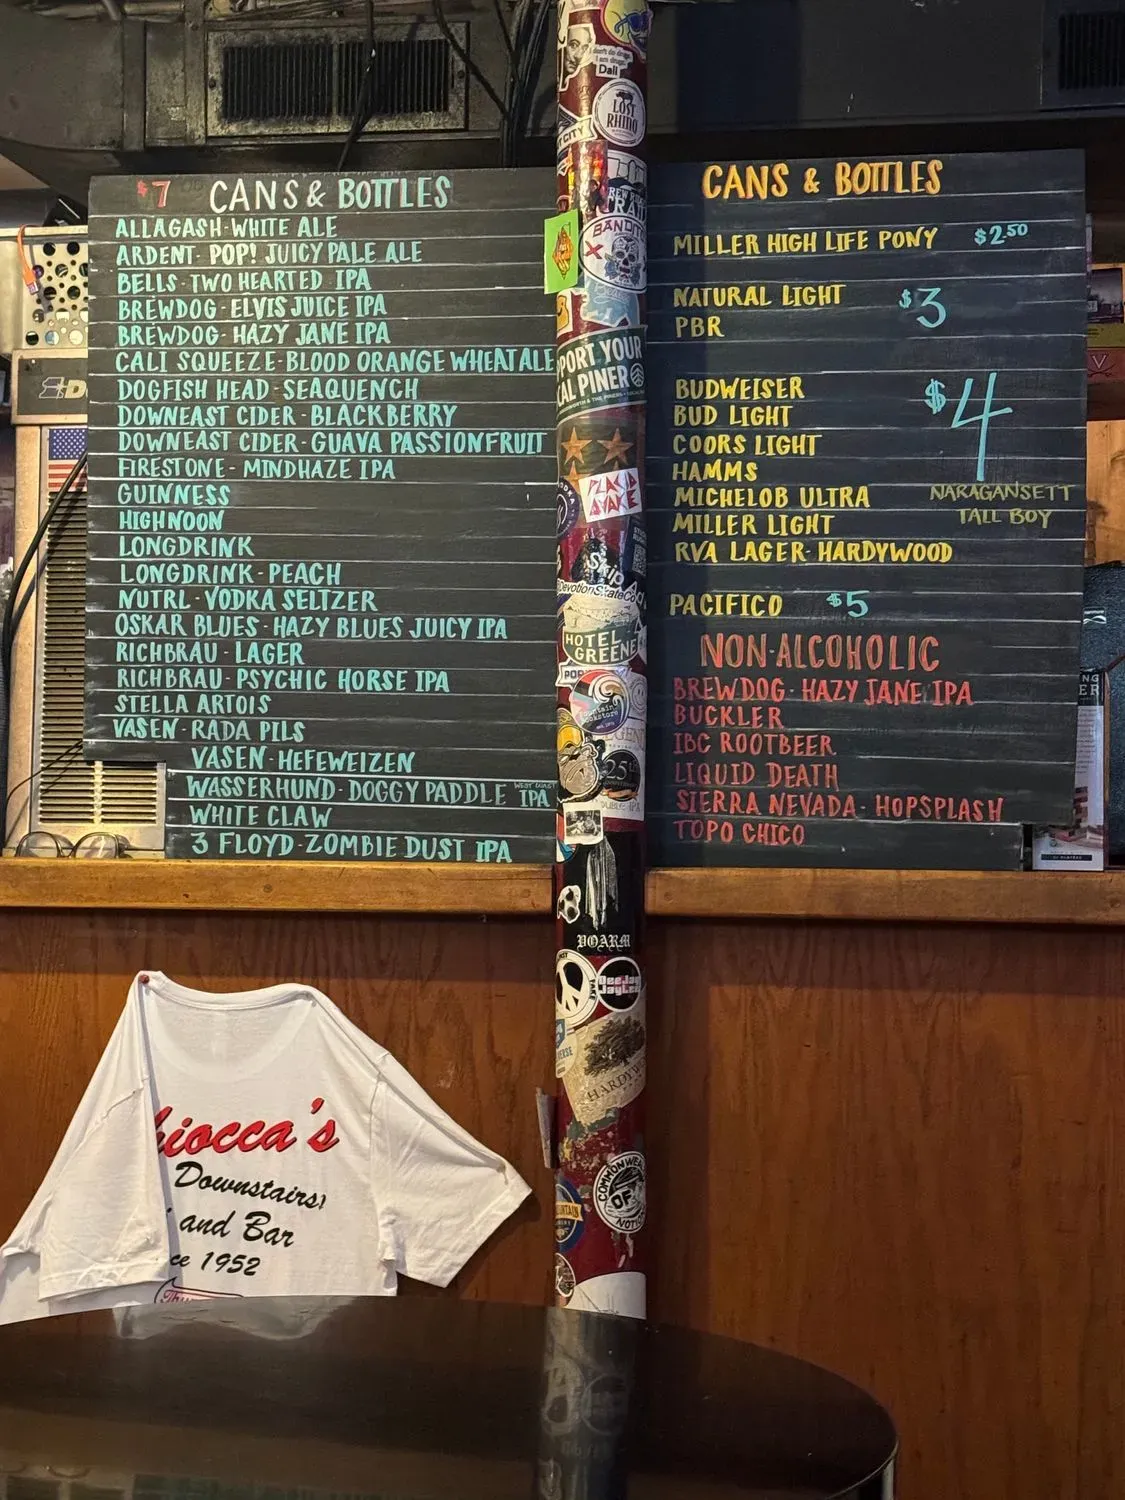 $7 CANS & BOTTLES
ALLAGASH-WHITE ALE
ARDENT- POP! JUICY PALE ALE
BELLS-TWO HEARTED IPA
BREWDOG-ELVIS JUICE IPA
BREWDOG-HAZY JANE IPA
CALI SQUEEZE-BLOOD ORANGE WHEAT ALE
DOGFISH HEAD -SEAQUENCH
DOWNEAST CIDER-BLACKBERRY
DOWNEAST CIDER-GUAVA PASSIONFRUIT
FIRESTONE-MINDHAZE IPA
GUINNESS
HIGHNOON
LONGDRINK
LONGDRINK-PEACH
NUTRL-VODKA SELTZER
OSKAR BLUES-HAZY BLUES JUICY IPA
RICHBRAU-LAGER
RICHBRAU-PSYCHIC HORSE IPA
STELLA ARTOIS
VASEN-RADA PILS
VASEN-HEFEWEIZEN
WASSERHUND-DOGGY PADDLE WEST COAST IPA
WHITE CLAW
3 FLOYD-ZOMBIE DUST IPA
I don't do drugs
I am drugs
Dali
LOST RHINO
CITY
BANDITO
PORT YOUR
CAL PINER
PLACID
AWAKE
Skip
DevotionSkateCo
HOTEL
GREENE
25th
DOUBLE IPA
YOARM
DeeJay
JayLee
HARDYW
COMMONWEA
OF
NOTI
CANS & BOTTLES
MILLER HIGH LIFE PONY $2.50
NATURAL LIGHT $3
PBR
BUDWEISER $4
BUD LIGHT
COORS LIGHT
HAMMS
MICHELOB ULTRA
MILLER LIGHT
RVA LAGER-HARDYWOOD
NARAGANSETT
TALL BOY
PACIFICO $5
NON-ALCOHOLIC
BREWDOG-HAZY JANE IPA
BUCKLER
IBC ROOTBEER
LIQUID DEATH
SIERRA NEVADA-HOPSPLASH
TOPO CHICO
hiocca's
Downstairs
and Bar
ce 1952